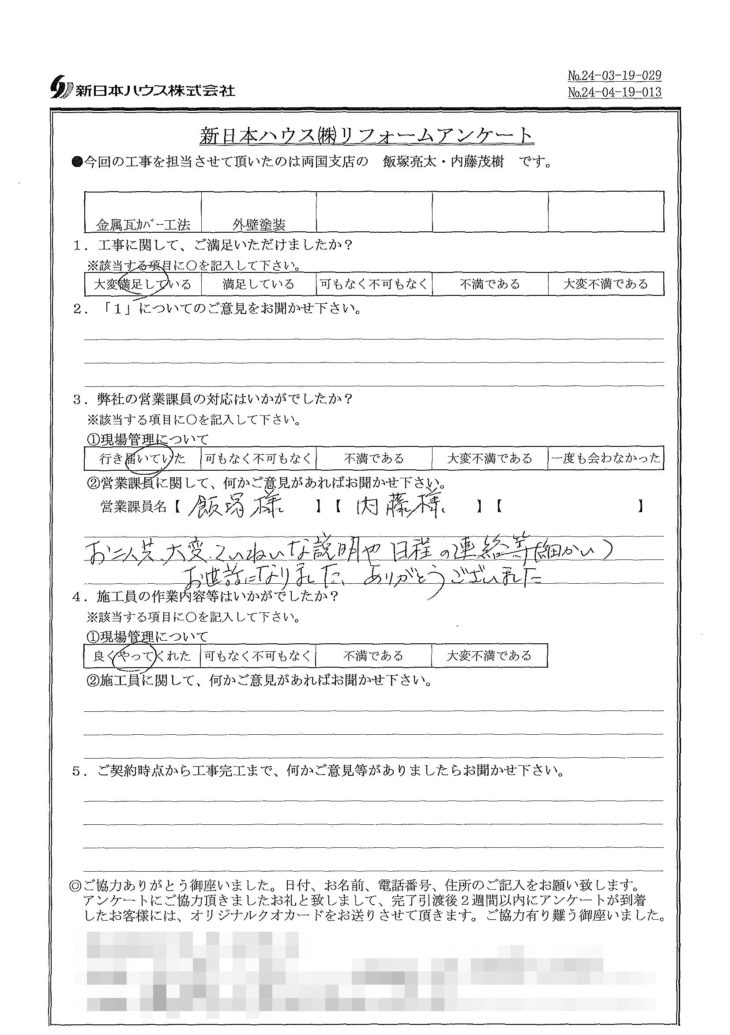 新日本ハウス株式会社
№24-03-19-029
№24-04-19-013
新日本ハウス㈱リフォームアンケート
●今回の工事を担当させて頂いたのは両国支店の 飯塚亮太・内藤茂樹 です。
金属瓦ｶﾊﾞｰ工法 外壁塗装
1．工事に関して、ご満足いただけますたか？
※該当する項目に○を記入して下さい。
大変満足している 満足している 可もなく不可もなく 不満である 大変不満である
2．「1」についてのご意見をお聞かせ下さい。
3．弊社の営業課員の対応はいかがでしたか？
※該当する項目に○を記入して下さい。
①現場管理について
行き届いていた 可もなく不可もなく 不満である 大変不満である 一度も会わなかった
②営業課員に関して、何かご意見があればお聞かせ下さい。
営業課員名【 飯塚様 】【 内藤様 】【 】
お二人共大変、ていねいな説明や日程の連絡等(細かい)
お世話になりました、ありがとうございました
4．施工員の作業内容等はいかがでしたか？
※該当する項目に○を記入して下さい。
①現場管理について
良くやってくれた 可もなく不可もなく 不満である 大変不満である
②施工員に関して、何かご意見があればお聞かせ下さい。
5．ご契約時点から工事完工まで、何かご意見等がありましたらお聞かせ下さい。
◎ご協力ありがとう御座いました。日付、お名前、電話番号、住所のご記入をお願い致します。
アンケートにご協力頂きましたお礼と致しまして、完了引渡後２週間以内にアンケートが到着
したお客様には、オリジナルクオカードをお送りさせて頂きます。ご協力有り難う御座いました。